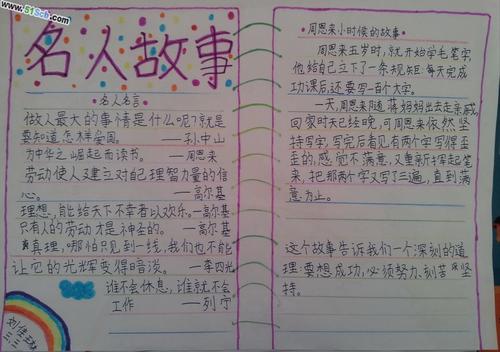 www.51Sch.com
名人故事
名人名言
做人最大的事情是什么呢?就是
要知道怎样爱国。——孙中山
为中华之崛起而读书。——周恩来
劳动使人又建立对自己理智力量的信
心。——高尔基
理想,能给天下不幸者以欢乐。—高尔基
只有人的劳动才是神圣的。——高尔基
真理,哪怕只见到一线,我们也不能
让它的光辉变得暗淡。—李四光
谁不会休息,谁就不会
工作——列宁
刘佳琳
三三
·周恩来小时候的故事·
周恩来五岁时,就开始学毛笔字,
他给自己立下了一条规矩:每天完成
功课后,还要写一百个大字。
一天,周恩来随蒋妈妈出去走亲戚,
回家时天已经晚,可周恩来依然坚
持写字,写完后看见有两个字写得歪
歪的,感觉不满意,又重新挥起笔
来,把那两个字又写了三遍,直到满
意为止。
这个故事告诉我们一个深刻的道
理:要想成功,必须努力、刻苦、坚
持。